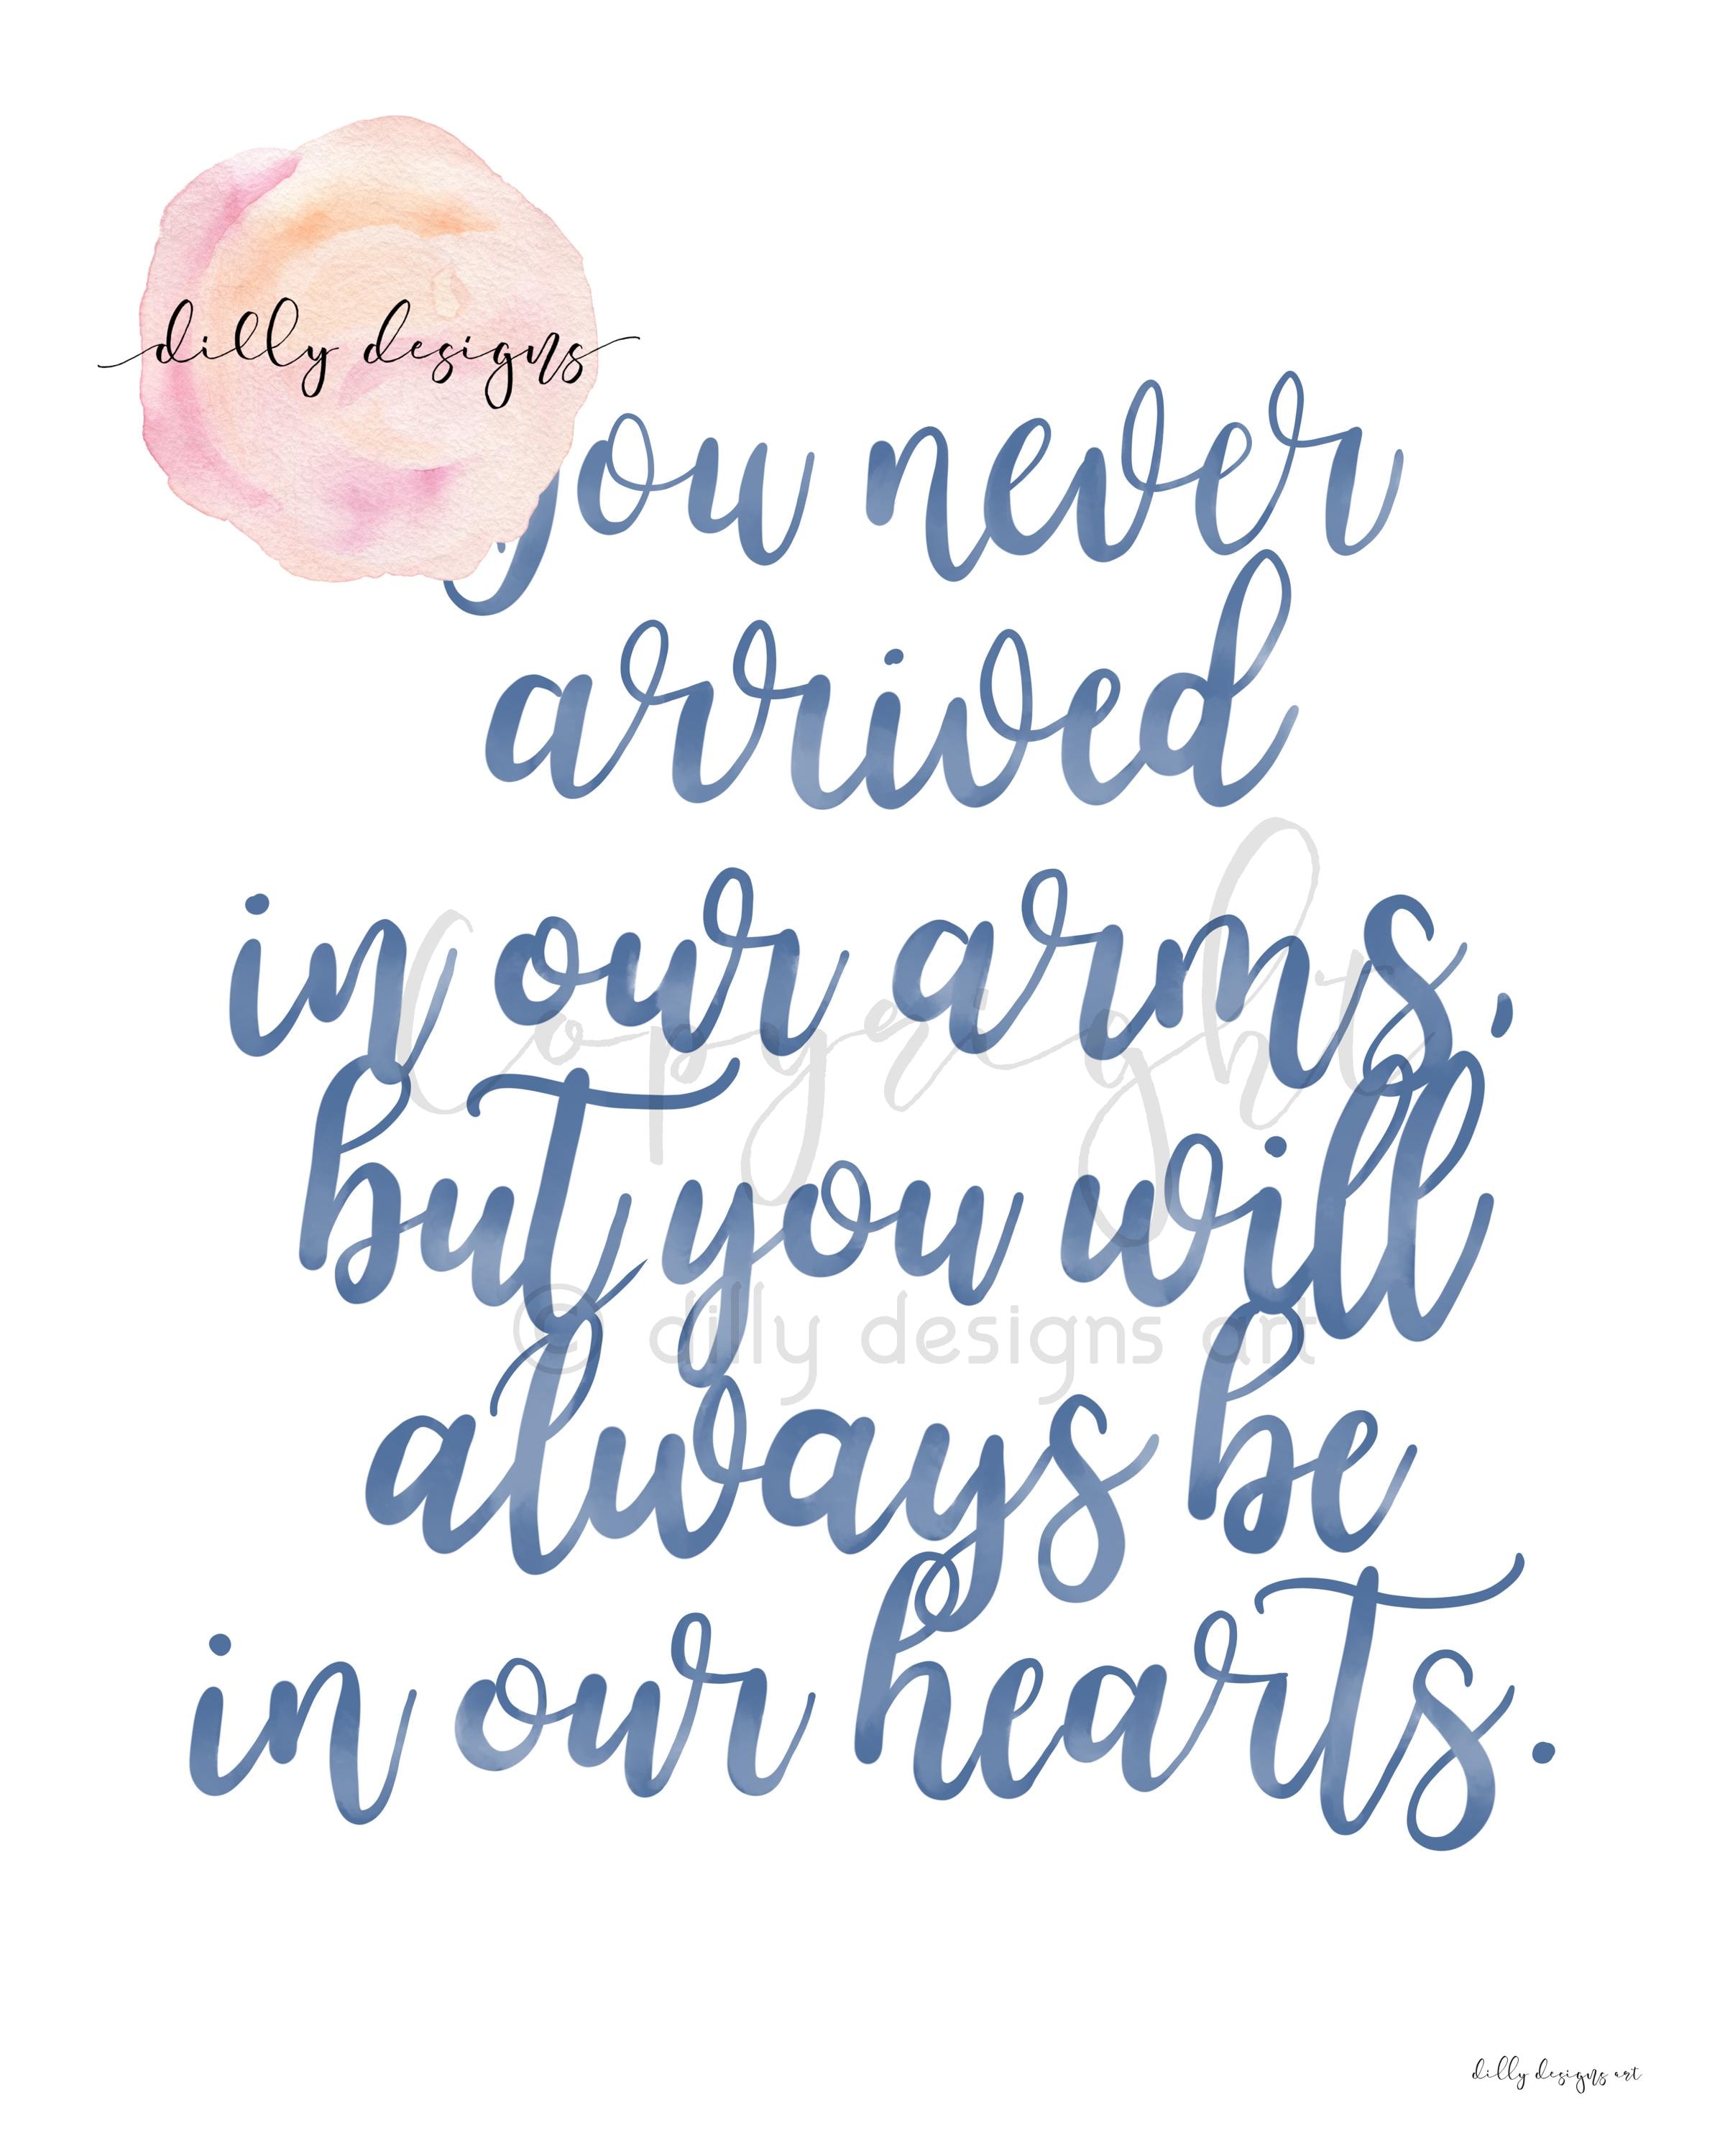 dilly designs
you never
arrived
in our arms,
Copyright
but you will
© dilly designs art
always be
in our hearts.
dilly designs art